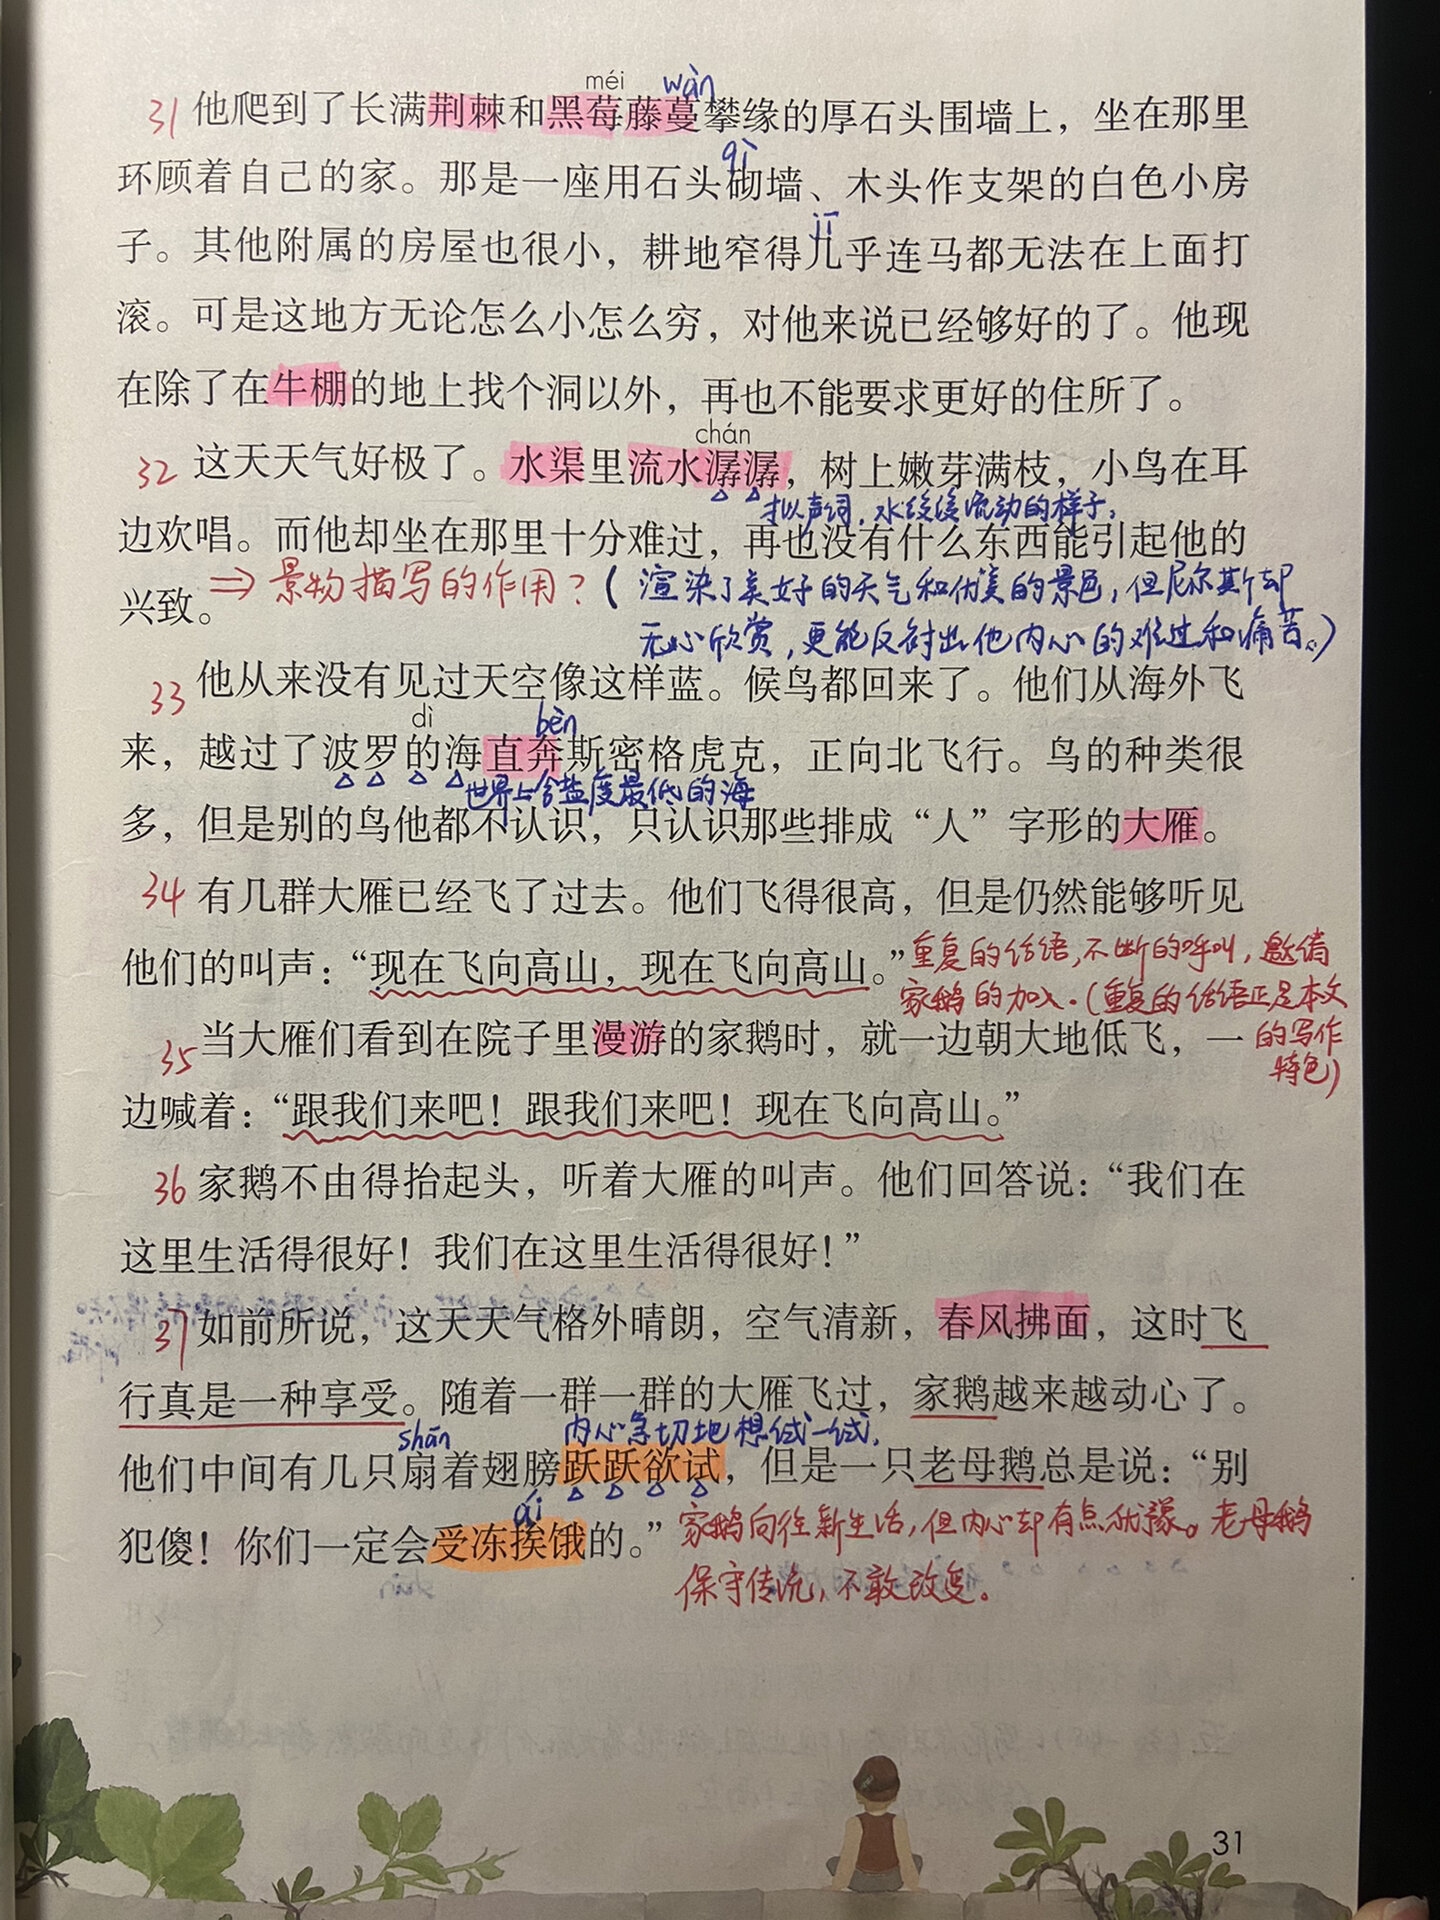 méi wàn
31 他爬到了长满荆棘和黑莓藤蔓攀缘的厚石头围墙上，坐在那里
qì
环顾着自己的家。那是一座用石头砌墙、木头作支架的白色小房
jī
子。其他附属的房屋也很小，耕地窄得几乎连马都无法在上面打
滚。可是这地方无论怎么小怎么穷，对他来说已经够好的了。他现
在除了在牛棚的地上找个洞以外，再也不能要求更好的住所了。
chán
32 这天天气好极了。水渠里流水潺潺，树上嫩芽满枝，小鸟在耳
拟声词，水缓缓流动的样子。
边欢唱。而他却坐在那里十分难过，再也没有什么东西能引起他的
兴致。⇒景物描写的作用？(渲染了美好的天气和优美的景色，但尼尔斯却
无心欣赏，更能反衬出他内心的难过和痛苦。)
33 他从来没有见过天空像这样蓝。候鸟都回来了。他们从海外飞
dì bèn
来，越过了波罗的海直奔斯密格虎克，正向北飞行。鸟的种类很
世界上含盐度最低的海
多，但是别的鸟他都不认识，只认识那些排成“人”字形的大雁。
34 有几群大雁已经飞了过去。他们飞得很高，但是仍然能够听见
他们的叫声：“现在飞向高山，现在飞向高山。”重复的话语，不断的呼叫，邀请
家鹅的加入.(重复的话语正是本文
35 当大雁们看到在院子里漫游的家鹅时，就一边朝大地低飞，一
的写作
特色)
边喊着：“跟我们来吧！跟我们来吧！现在飞向高山。”
36 家鹅不由得抬起头，听着大雁的叫声。他们回答说：“我们在
这里生活得很好！我们在这里生活得很好！”
37 如前所说，这天天气格外晴朗，空气清新，春风拂面，这时飞
行真是一种享受。随着一群一群的大雁飞过，家鹅越来越动心了。
shān 内心急切地想试一试.
他们中间有几只扇着翅膀跃跃欲试，但是一只老母鹅总是说：“别
ái
犯傻！你们一定会受冻挨饿的。”家鹅向往新生活，但内心却有点犹豫。老母鹅
保守传统，不敢改变。
31